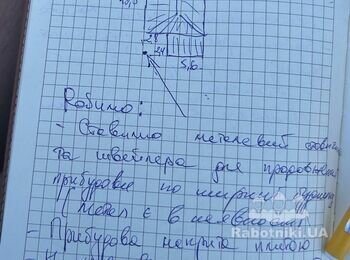 2,8
2,4
5,6
Робимо:
- Ставимо металевий
та швейлера для продовження
прибудови по ширині будинку
(метал є в наявності)
- Прибудова накрита плитою
Rabotniki.UA